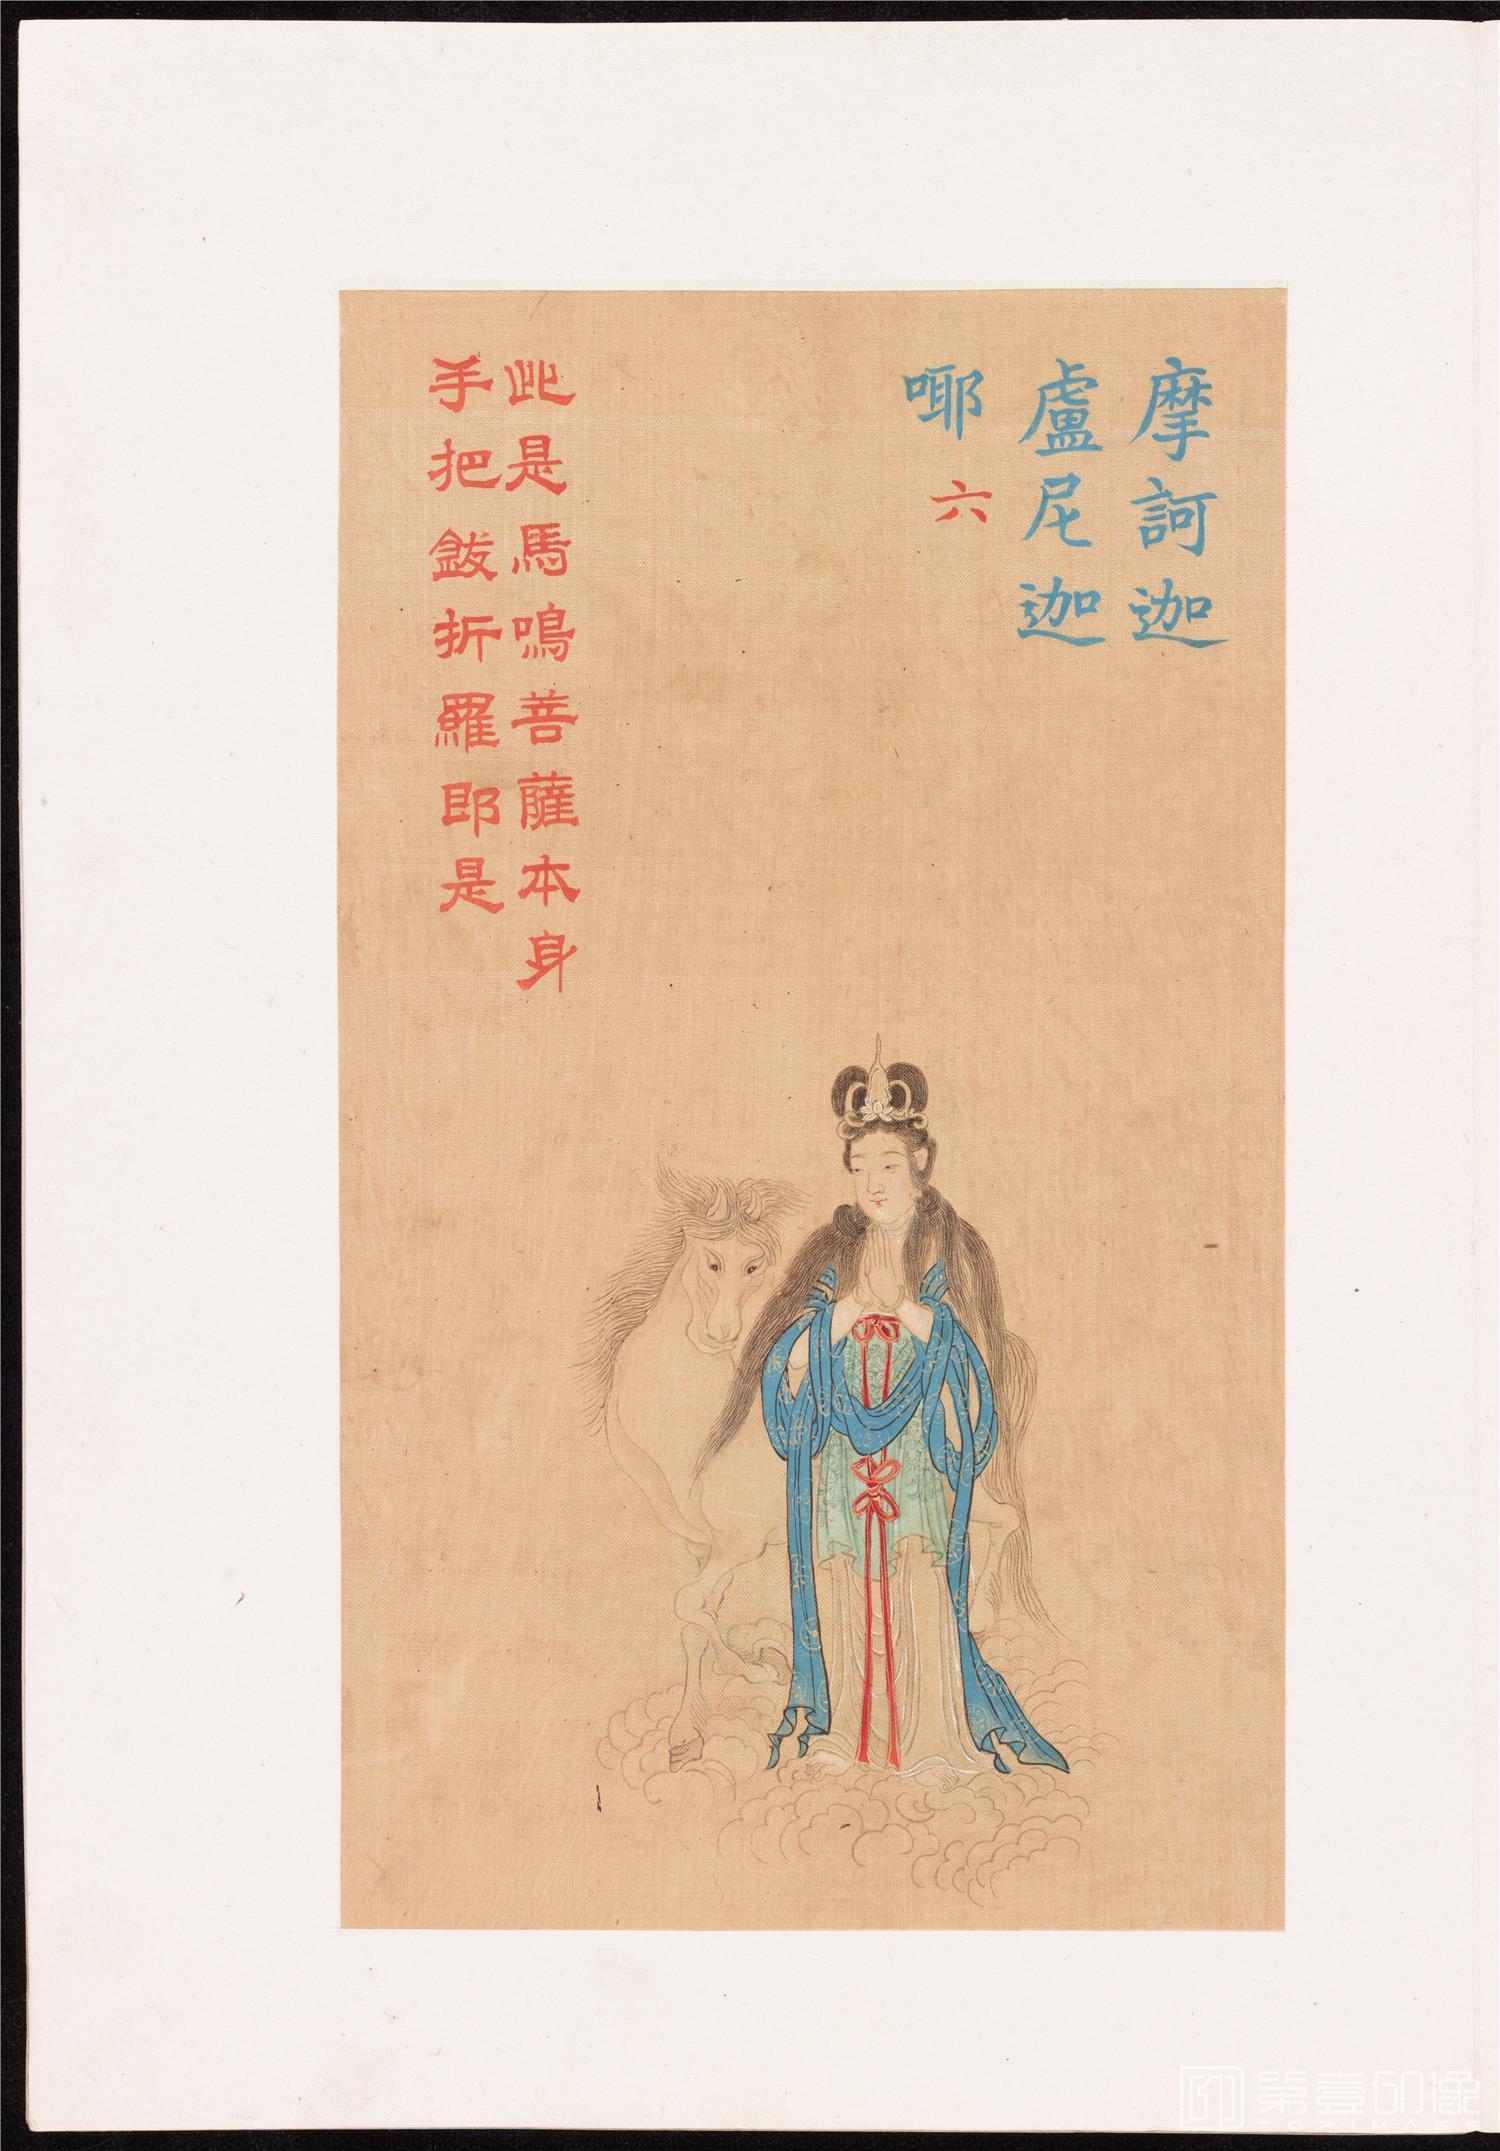 摩訶迦
盧尼迦
哪
六
此是馬鳴菩薩本身
手把鈸折羅即是
第壹印像
TOPIMAGE